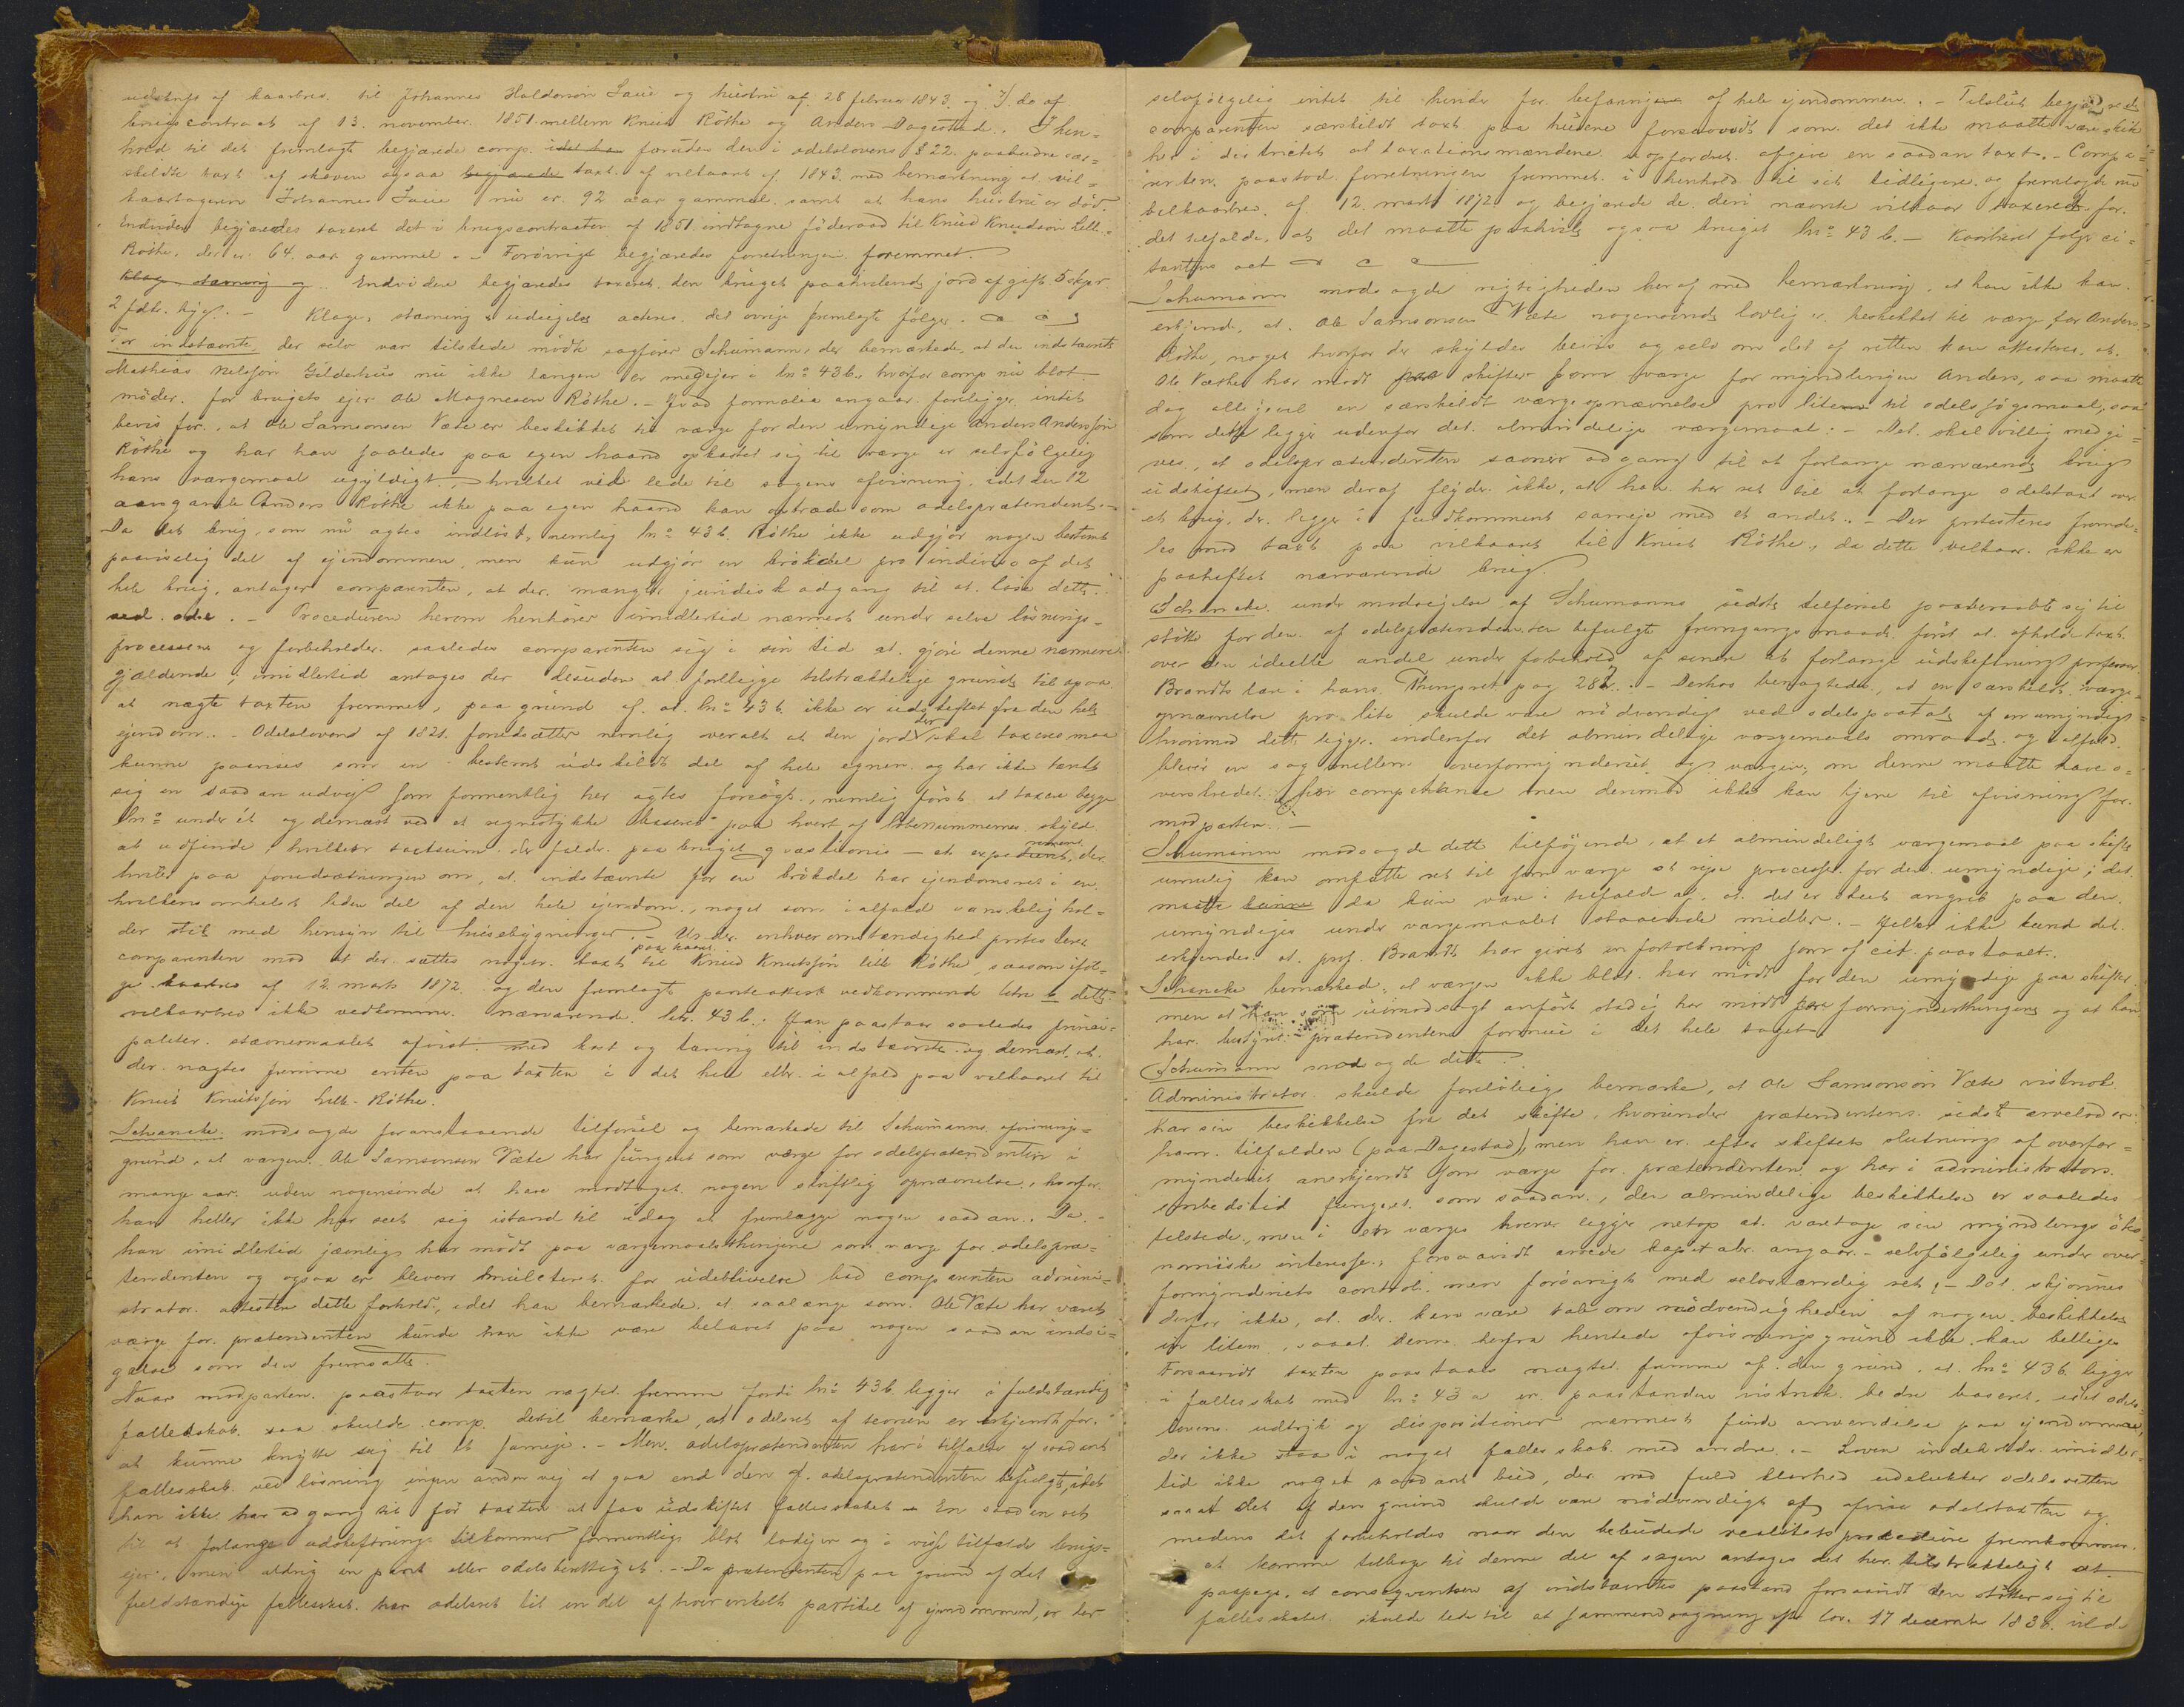 udskrift af kaarbrev til Johannes Haldorsön Saue og hustru af 28 februar 1843 og I do af
brugscontract af 13. november 1851 mellem Knud Röthe og Anders Dagestad. I hen-
hold til det fremlagte begjærede comp. foruden den i odelslovens § 22 paabudne sær-
skildte taxt af skoven ogsaa begjærede taxt af vilkaaret af 1843 med bemærkning at vil-
kaartageren Johannes Saue nu er 92 aar gammel samt at hans hustru er död.
Endvidere begjæredes taxeret det i brugscontracten af 1851 indtagne föderaad til Knud Knudsön Lille
Röthe, der er 64 aar gammel. - Forövrigt begjæredes forretningen fremmet.
Klage, stævning og Endvidere begjæredes taxeret den bruget paahvilende jord afgift 5 skpr
2 fdk. byg. - Klage, stævning udsiges acten. det övrige fremlagte fölger.
For indstævnte, der selv var tilstede mödte sagförer Schumann, der bemærkede, at den indstævnte
Mathias Nelsson Gilderhus nu ikke længer er medejer i lno 43 b, hvorfor comp nu blot
möder for brugets ejer Ole Magnesen Röthe. - Hvad formalia angaar foreligger intet
bevis for, at Ole Samsonsen Væte er beskikket til værge for den umyndige Anders Andersson
Röthe og har han saaledes paa egen haand opkastet sig til værge er selvfölgelig
hans værgemaal ugyldigt, hvilket vil lede til sagens afvisning, idet den 12
aargamle Anders Röthe ikke paa egen haand kan optræde som odelsprætendent. -
Da det brug, som nu agtes indlöst, nemlig lno 43 b. Röthe ikke udgjör nogen bestemt
paaviselig del af ejendommen, men kun udgjör en brökdel pro indiviso af det
hele brug, antager comparenten, at der mangler juridisk adgang til at löse dette
ved odel. - Proceduren herom henhörer imidlertid nærmest under selve lösnings-
processen og forbeholder saaledes comparenten sig i sin tid at gjöre denne nærmere
gjældende, imidlertid antages der desuden at foreligge tilstrækkelige grunde til ogsaa
at nægte taxten fremmet, paa grund af at lno 43 b ikke er udskiftet fra den hele
ejendom. - Odelsloven af 1821 forudsætter nemlig overalt at den jord der skal taxeres maa
kunne paavises som en bestemt udskildt del af hele egnen og har ikke tænkt
sig en saadan udvej som formentlig her agtes forsögt, nemlig först at taxere begge
lno under ét og dernæst ved et regnestykke baseret paa hvert af löbenummernes skyld
at udfinde, hvilken taxtsum der falder paa bruget qvæstionis - et experiment, der
hviler paa forudsætningen om, at indstævnte for en brökdel har ejendomsret i en
hvilkensomhelst liden del af den hele ejendom, noget som ialfald vanskelig hol-
der stik med hensyn til husebygninger. - Under enhver omstændighed protesterer
comparenten mod at der sættes nogen taxt paa kaaret til Knud Knutsson lille Röthe, saasom iföl-
ge kaarbrev af 12 marts 1872 og den fremlagte panteattest vedkommende dette
vilkaarbrev ikke vedkommer nærværende lno. 43 b. Han paastaar saaledes princi-
paliter stævnemaalet afvist med kost og tæring til indstævnte og dernæst, at
der nægtes fremme enten paa taxten i det hele eller ialfald paa vilkaaret til
Knut Knutsson Lille-Röthe.
Schancke modsagde foranstaaende tilförsel og bemærkede til Schumanns afvisnings-
grund, at værgen Ole Samsonsen Væte har fungeret som værge for odelsprætendenten i
mange aar uden nogensinde at have modtaget nogen skriftlig opnævnelse, hvorfor
han heller ikke har seet sig istand til idag at fremlægge nogen saadan. Da
han imidlertid jævnlig har mödt paa værgemaalsthingene som værge for odelspræ-
tendenten og ogsaa er bleven mulcteret for udeblivelse bad comparenten admini-
strator attestere dette forhold, idet han bemærkede at saalænge som Ole Væte har været
værge for prætendenten kunde han ikke være belavet paa nogen saadan indsi-
gelse som den fremsatte.
Naar modparten paastaar taxten nægtet fremme fordi lno 43 b. ligger i fuldstændig
fællesskab, saa skulde comp. dertil bemærke, at odelsret af teorien er erkjendt for
at kunne knytte sig til et sameje. - Men odelsprætendenten har i tilfælde af saadant
fællesskab ved lösning ingen anden vej at gaa end den af odelsprætendenten befulgte, idet
han ikke har adgang til för taxten at faa udskiftet fællesskabet - En saadan ret
til at forlange udskiftning tilkommer formentlig blot lodejer og i visse tilfælde brugs-
ejer, men aldrig en pant eller odelsberettiget. - Da prætendenten paa grund af det
fuldstændige fællesskab har odelsret til en del af hver enkelt partikel af ejendommen, er der
selvfölgelig intet til hinder for befaringen af hele ejendommen. - Tilslut begjærede
comparenten særskildt taxt paa husene forsaavidt som det ikke maatte være skik
her i districtet at taxationsmændene uopfordret afgive en saadan taxt. - Compa-
renten paastod forretningen fremmet i henhold til sit tidligere og fremlagde nu
vilkaarbrev af 12. marts 1872 og begjærede de deri nævnte vilkaar taxeret for
det tilfælde, at det maatte paahvile ogsaa bruget lno 43 b. - Kaarbrevet fölger ci-
tantens act
Schumann modsagde rigtigheden heraf med bemærkning, at han ikke kan
erkjende, at Ole Samsonsen Væte nogensinde lovlig er beskikket til værge for Anders
Röthe, noget hvorfor der skyldes bevis og selv om det af retten kan attesteres, at
Ole Væthe har mödt paa skifter som værge for myndlingen Anders, saa maatte
dog alligevel en særskildt værgeopnævnelse pro litem til odelssögsmaal, saa-
som dette ligger udenfor det almindelige værgemaal: - Det skal villig medgi-
ves, at odelsprætendenten savner adgang til at forlange nærværende brug
udskiftet, men deraf flyder ikke, at han har ret til at forlange odelstaxt over
et brug, der ligger i fuldkomment sameje med et andet. - Der protesteres fremde-
les mod taxt paa vilkaaret til Knut Röthe, da dette vilkaar ikke er
paaheftet nærværende brug.
Schancke under modsigelse af Schumanns sidste tilförsel paaberaabte sig til
stötte for den af odelsprætendenten befulgte fremgangsmaade först at afholde taxt
over den ideelle andel under forbehold af senere at forlange udskiftning professor
Brandts lære i hans Thingsret pag 282. - Derhos benægtede, at en særskildt værge-
opnævnelse pro lite skulde være nödvendig ved odelspaatale af en umyndig
hvorimod dette ligger indenfor det almindelige værgemaals omraade og ialfald
blever en sag mellem overformynderiet og værgen, om denne maatte have o-
verskredet sin competance men derimod ikke kan tjene til afvisning for
modparten. -
Schumann modsagde dette tilföjende, at et almindeligt værgemaal paa skifte
umulig kan omfatte ret til som værge at rejse processer for den umyndige; det
maatte da kun være i tilfælde af, at det er skeet angreb paa den
umyndiges under værgemaalet staaende midler. - Heller ikke kunde det
erkjendes at prof. Brandt har givet en fortolkning som af cit. paastaaet.
Schancke bemærkede, at værgen ikke blot har mödt for den umyndige paa skifter
men at han som uimodsagt anfört stadig har mödt paa formynderthingene og at han
har bestyret prætendentens formue i det hele taget
Schumann modsagde dette.
Administrator skulde foreløbig bemærke, at Ole Samsonsön Væte vistnok
har sin beskikkelse fra det skifte, hvorunder prætendentens sidste arvelod er
ham tilfalden (paa Dagestad), men han er efter skiftets slutning af overfor-
mynderiet anerkjendt som værge for prætendenten og har i administrators
embedstid fungeret som saadan, den almindelige beskikkelse er saaledes
tilstede, men i en værges hverv ligger netop at varetage sin myndlings öko-
nomiske interesse, forsaavidt arvede kapitaler angaar - selvfölgelig under over-
formynderiets control, men forövrigt med selvstændig ret; - Det skjönnes
derfor ikke, at der kan være tale om nödvendigheden af nogen beskikkelse
in litem, saaat denne herfra hentede afvisningsgrund ikke kan billiges
Forsaavidt taxten paastaaes nægtet fremme af den grund, at lno 43 b ligger
i fællesskab med lno 43 a er paastanden vistnok bedre baseret, idet odels-
lovens udtryk og dispositioner nærmest finde anvendelse paa ejendomme,
der ikke staa i noget fællesskab med andre. - Loven indeholder imidler-
tid ikke noget saadant bud, der med fuld klarhed udelukker odelsretten
saaat det af den grund skulde være nödvendigt at afvise odelstaxten og
medens det forbeholdes naar den bebudede realitets procedure fremkommer
at komme tilbage til denne del af sagen antages det her tilstrækkeligt at
paapege, at consequentsen af indstævntes paastand forsaavidt den stötter sig til
fællesskabet skulde lede til at sammendragning efter lov. 17 december 1836 vilde